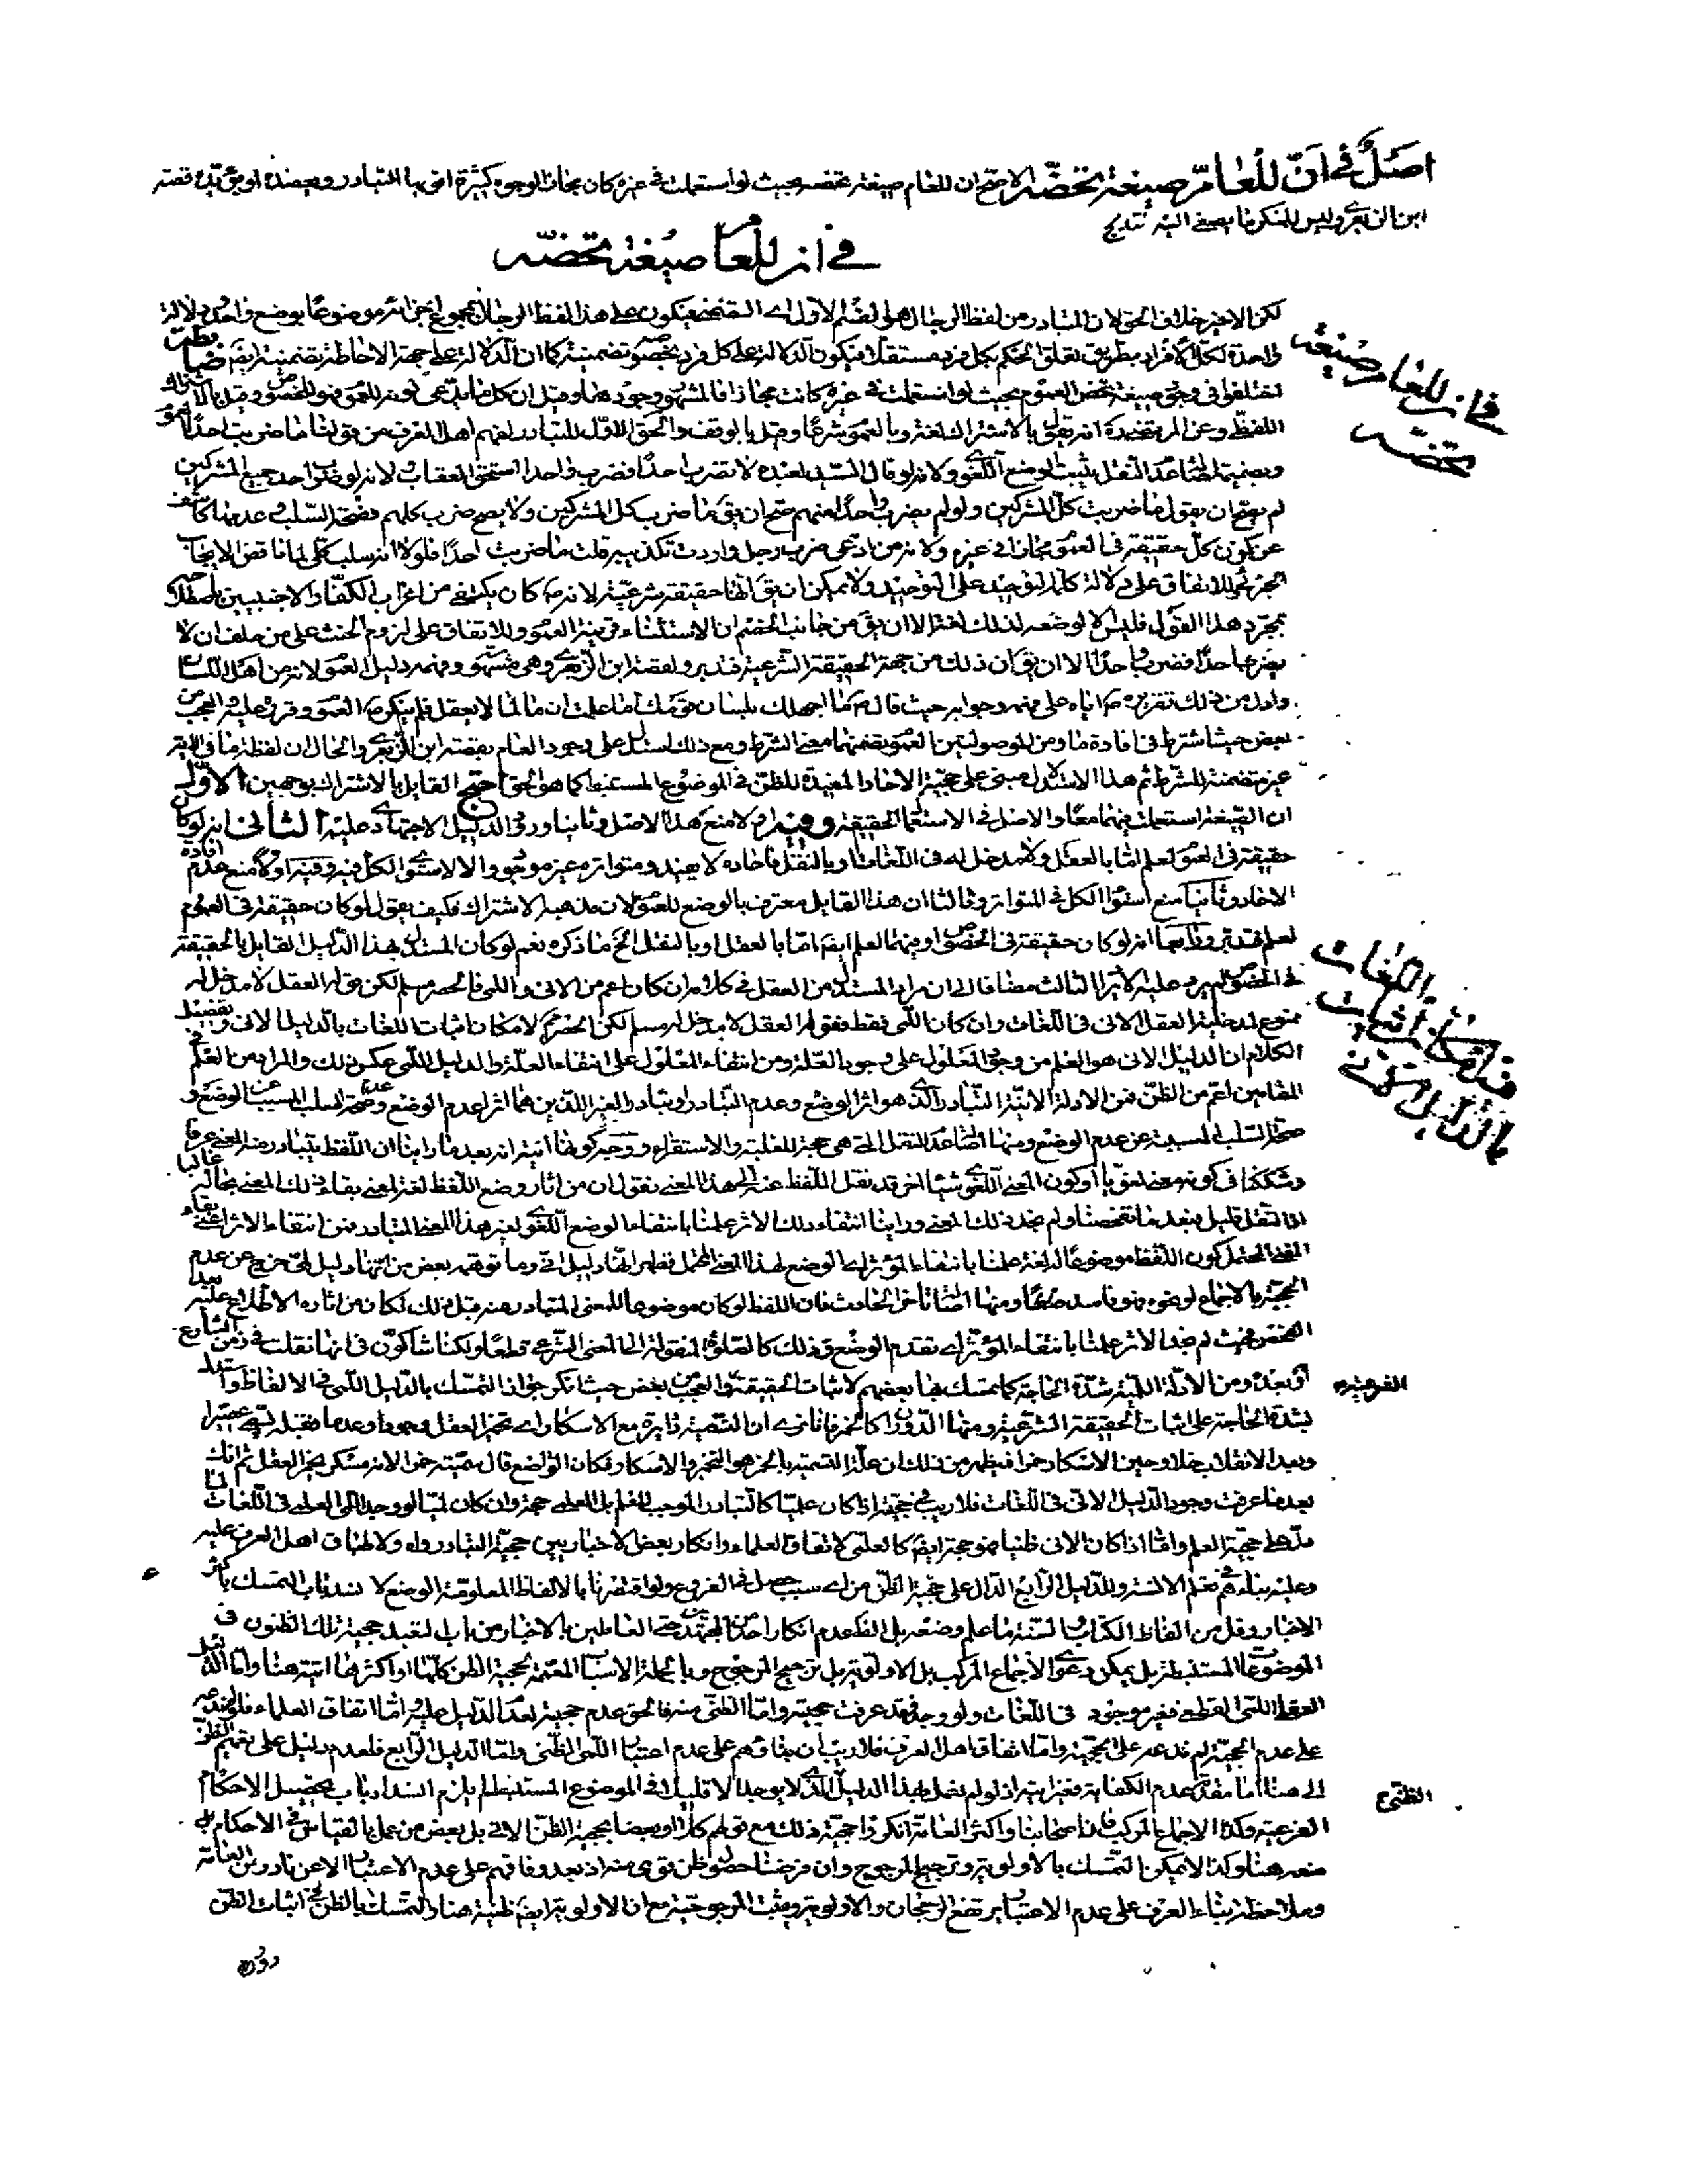 اصل في ان للعام صيغة تخصه الاصح ان للعام صيغة تخصه بحيث لو استعملت في غيره كان مجازا لوجوه كثيرة اقويها التبادر ويعضده او يؤيده قصة
ابن الزبعرى وليس للمنكر ما يصغى اليه
في انه للعام صيغة تخصه
لكن الاخير خلاف الحق لان المتبادر من لفظ الرجال هو القسم الاول اى فيكون على هذا لفظ الرجال بمجموع اجزائه موضوعا بوضع واحد ودلالة
واحدة لكل الافراد بطريق تعلق الحكم بكل فرد مستقلا فيكون الدلالة على كل فرد بخصوصه تضمنية كما ان الدلالة على جهة الاحاطة تضمنية ايضا
اختلفوا في وجود صيغة تخص العموم بحيث لو استعملت في غيره كانت مجازا فالمشهور وجودها وقيل ان كل ما يدعى كونه للعموم فهو للخصوص وقيل بالاشتراك
اللفظى وعن المرتضى ره انه يقول بالاشتراك لغة وبالعموم شرعا وقيل بالوقف والحق الاول للتبادر لفهم اهل العرف من قولنا ما ضربت احدا العموم
وبضميمة اصالة عدم النقل يثبت الوضع اللغوى ولانه لو قال السيد لعبده لا تضرب احدا فضرب واحدا استحق العقاب ولانه لو ضرب احد جميع المشركين
لم يصح ان يقول ما ضربت كل المشركين ولو لم يضرب واحدا منهم صح ان يق ما ضرب كل المشركين ولا يصح ضرب كلهم فصحة السلب وعدمها كاشف
عن كون كل حقيقة في العموم مجازا في غيره ولانه من ادعى ضرب رجل واردت تكذيبه قلت ما ضربت احدا فلولا انه سلب كلى لما ناقض الايجاب
الجزئى وللاتفاق على دلالة كلمة التوحيد على التوحيد ولا يمكن ان يق انها حقيقة شرعية لانه ص كان يكتفى من اعراب الكفار والاجنبيين باصطلاحه
بمجرد هذا القول فليس الا لوضعه لذلك لغة الا ان يق من جانب الخصم ان الاستثناء قرينة العموم وللاتفاق على لزوم الحنث على من حلف ان لا
يضرب احدا فضرب واحدا الا ان يق ان ذلك من جهة الحقيقة الشرعية فتدبر ولقصة ابن الزبعرى وهى مشهورة وفهمه دليل العموم لانه من اهل اللسان
وادل من ذلك تقريره ص اياه على فهمه وجوابه حيث قال ص ما اجهلك بلسان قومك اما علمت ان ما لما لا يعقل فلم ينكر ص العموم وقرره عليه والعجب من
بعض حيث اشترط في افادة ما ومن الموصولتين العموم تضمنهما معنى الشرط ومع ذلك استدل على وجود العام بقصة ابن الزبعرى والحال ان لفظة ما في الاية
غير متضمنة للشرط ثم هذا الاستدلال مبنى على حجية الاحاد المفيدة للظن في الموضوع المستنبط كما هو الحق احتج القايل بالاشتراك بوجهين الاول
ان الصيغة استعملت فيهما معا والاصل في الاستعمال الحقيقة وفيه اولا منع هذا الاصل وثانيا ورود الدليل الاجتهادى عليه الثانى انه لو كان
حقيقة في العموم لعلم اما بالعقل ولا مدخل له في اللغات او بالنقل فاحاده لا يفيد ومتواتره غير موجود والا لاستوى الكل فيه وفيه اولا منع عدم افادة
الاحاد وثانيا منع استواء الكل في المتواتر وثالثا ان هذا القايل معترف بالوضع للعموم لان مذهبه الاشتراك فكيف يقول لو كان حقيقة في العموم
لعلم فتدبر ورابعا انه لو كان حقيقة في الخصوص او فيهما لعلم ايضا اما بالعقل او بالنقل الخ ما ذكره نعم لو كان المستدل بهذا الدليل القايل بالحقيقة
في الخصوص لم يرد عليه الايراد الثالث مضافا الى ان مراد المستدل من العقل في كلامه ان كان اعم من الانى واللمى فالحصر مسلم لكن قوله العقل لا مدخل له
ممنوع لمدخلية العقل الانى في اللغات وان كان اللمى فقط فقوله العقل لا مدخل له مسلم لكن الحصر مم لامكان اثبات اللغات بالدليل الانى وتفصيل
الكلام ان الدليل الانى هو العلم من وجود المعلول على وجود العلة ومن انتفاء المعلول على انتفاء العلة والدليل اللمى عكس ذلك والمراد من العلم في
المقامين اعم من الظن فمن الادلة الانية التبادر الذى هو اثر الوضع وعدم التبادر او تبادر الغير اللذين هما اثر لعدم الوضع وعدم صحة السلب المسبب عن الوضع و
صحة السلب المسببة عن عدم الوضع ومنها اصالة عدم النقل التى هى حجة للغلبة والاستقراء ووجه كونها انية انه بعد ما راينا ان اللفظ يتبادر منه المعنى عرفا
وشككنا في كونه معنى لغويا او كون المعنى اللغوى شيئا اخر قد نقل اللفظ عنه الى هذا المعنى نقول ان من اثار وضع اللفظ لغة لمعنى بقاء ذلك المعنى بحاله غالبا
اذ النقل قليل فبعد ما تفحصنا ولم نجد ذلك المعنى وراينا انتفاء ذلك الاثر علمنا بانتفاء الوضع اللغوى لغير هذا المعنى المتبادر فمن انتفاء الاثر اعنى بقاء
المعنى المحتمل كون اللفظ موضوعا له لغة علمنا بانتفاء المؤثر اى الوضع لهذا المعنى المحتمل فظهر انها دليل انى وما توهمه بعض من انها دليل لمى خرج عن عدم
الحجية بالاجماع لوضوحه فهو فاسد قطعا ومنها اصالة تاخر الحادث فان اللفظ لو كان موضوعا للمعنى المتبادر منه قبل ذلك لكان من اثاره الاطلاع عليه بعد
التفحص فحيث لم نجد الاثر علمنا بانتفاء المؤثر اى تقدم الوضع وذلك كالصلوة المنقولة الى المعنى الشرعى قطعا ولكنا شاكون في انها نقلت في زمن الشارع
او بعده ومن الادلة اللمية شدة الحاجة كما تمسك بها بعضهم لاثبات الحقيقة والعجب من بعض حيث انكر جواز التمسك بالدليل اللمى في الالفاظ واستدل
بشدة الحاجة على اثبات الحقيقة الشرعية ومنها الدوران كالخمر فانا نرى ان التسمية دايرة مع الاسكار اى تخمر العقل وجودا وعدما فقبله تسمى عصيرا
وبعد الانقلاب خلا وحين الاسكار خمرا فيظهر من ذلك ان علة التسمية بالخمر هو التخمير والاسكار فكان الواضع قال سميته خمرا لانه مسكر يخمر العقل ثم انك
بعد ما عرفت وجود الدليل الانى في اللغات فلا ريب في حجيته اذا كان علميا كالتبادر الموجب للعلم بل العلم حجة وان كان لميا لو وجد اللمى العلمى في اللغات لما
دل على حجية العلم واما اذا كان الانى ظنيا فهو حجة ايضا كالعلمى لاتفاق العلماء وانكار بعض الاخباريين حجية التبادر واه ولاطباق اهل العرف عليه
وعليه بناءهم في تعلم الالسنة وللدليل الرابع الدال على حجية الظن من اى سبب حصل في الفروع ولو اقتصرنا بالالفاظ المعلومة الوضع لانسد باب التمسك باكثر
الاخبار وقل من الفاظ الكتاب والسنة ما علم وضعه بل الظ عدم انكار احد من المجتهدين حتى العاملين بالاخبار من باب التعبد حجية تلك الظنون في
الموضوعات المستنبطة بل يمكن دعوى الاجماع المركب بل الاولوية بل ترجيح المرجوح وبالجملة الاسباب المعممة لحجية الظن كلها او اكثرها اتية هنا واما الدليل
العقلى اللمى القطعى فغير موجود في اللغات ولو وجد فقد عرفت حجيته واما الظنى منه فالحق عدم حجيته لعدم الدليل عليه اما اتفاق العلماء فلو ندعه
على عدم الحجية لم ندعه على الحجية واما اتفاق اهل العرف فلا ريب ان بناءهم على عدم اعتبار اللمى الظنى واما الدليل الرابع فلعدم دليل على تعميم الظن
الى هنا اما مقدمة عدم الكفاية فغير اتية اذ لو لم نعمل بهذا الدليل الذى لا يوجد الا قليلا في الموضوع المستنبط لم يلزم انسداد باب تحصيل الاحكام
الفرعية وكذا الاجماع المركب فان اصحابنا واكثر العامة انكروا حجية ذلك مع قولهم كلا او بعضا بحجية الظن الانى بل بعض من عمل بالقياس في الاحكام
منعه هنا وكذا لا يمكن التمسك بالاولوية وترجيح المرجوح وان فرضنا حصول ظن قوى منه اذ بعد وفاقهم على عدم الاعتبار الا عن نادر من العامة
وملاحظة بناء العرف على عدم الاعتبار يرتفع الرجحان والاولوية ويثبت المرجوحية مع ان الاولوية ايضا ظنية هنا والتمسك بالظن في اثبات الظن
دورى
في ان للعام صيغة
تخصه
في امكان اثبات اللغات
بالدليل
الفرعية
الظنى ع